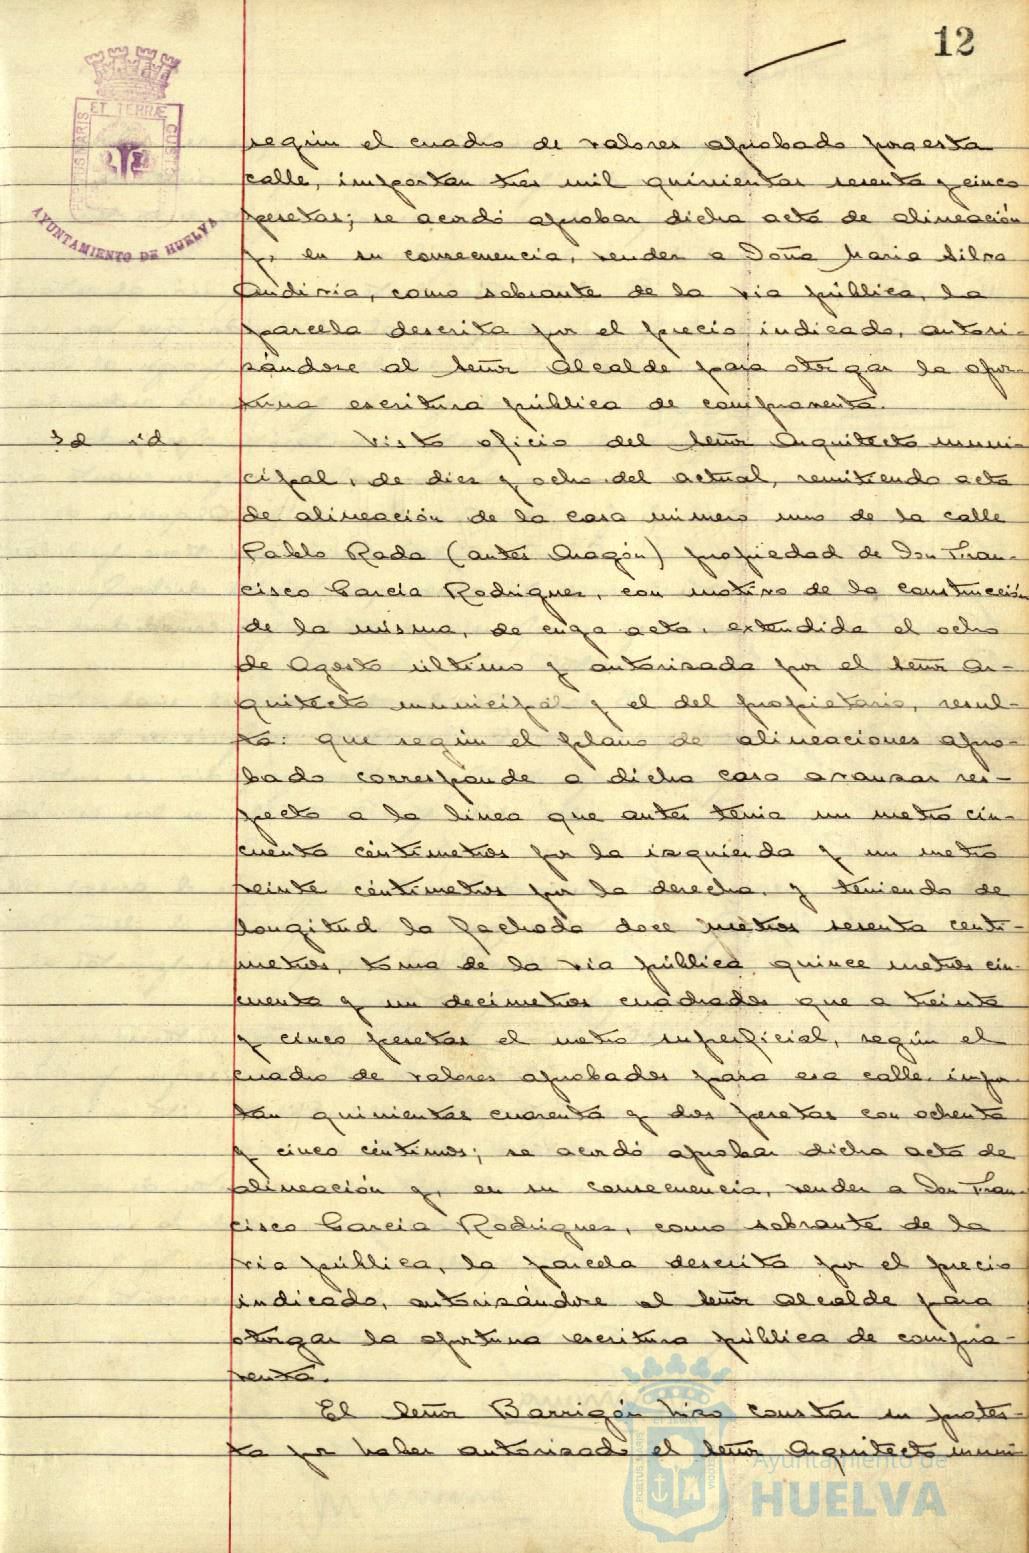 12
PORTUS MARIS ET TERRÆ CUSTODIA
AYUNTAMIENTO DE HUELVA
según el cuadro de valores aprobado para esta
calle, importan tres mil quinientas sesenta y cinco
pesetas; se acordó aprobar dicha acta de alineación
y, en su consecuencia, vender a Doña Maria Silva
Andivia, como sobrante de la via pública, la
parcela descrita por el precio indicado, autori-
zándose al Señor Alcalde para otorgar la opor-
tuna escritura pública de compraventa.
Id id.
Visto oficio del Señor Arquitecto muni-
cipal, de diez y ocho del actual, remitiendo acta
de alineación de la casa número uno de la calle
Pablo Rada (antes Aragón) propiedad de Don Fran-
cisco García Rodríguez, con motivo de la construcción
de la misma, de cuya acta, extendida el ocho
de Agosto último y autorizada por el Señor Ar-
quitecto municipal y el del propietario, resul-
ta: que según el plano de alineaciones apro-
bado corresponde a dicha casa avanzar res-
pecto a la línea que antes tenia un metro cin-
cuenta céntimetros por la izquierda y un metro
veinte céntimetros por la derecha, y teniendo de
longitud la fachada doce metros sesenta centi-
metros, toma de la via pública quince metros cin-
cuenta y un decímetros cuadrados que a treinta
y cinco pesetas el metro superficial, según el
cuadro de valores aprobados para esa calle, impor
tan quinientas cuarenta y dos pesetas con ochenta
y cinco céntimos; se acordó aprobar dicha acta de
alineación y, en su consecuencia, vender a Don Fran-
cisco García Rodríguez, como sobrante de la
via pública, la parcela descrita por el precio
indicado, autorizándose al Señor Alcalde para
otorgar la oportuna escritura pública de compra-
venta.
El Señor Barrigón hizo constar su protes-
ta por haber autorizado el Señor Arquitecto muni-
Ayuntamiento de
HUELVA